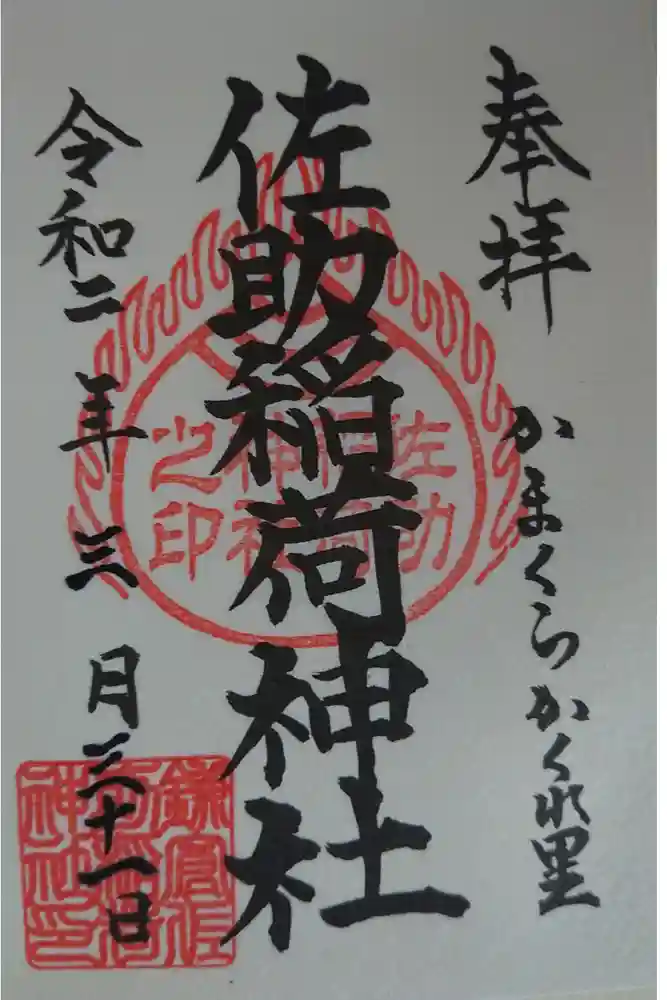 奉拝
かまくらかくれ里
佐助稲荷神社
令和二年三月三十一日
佐助
稲荷
神社
之印
鎌倉佐
助稲荷
神社之印